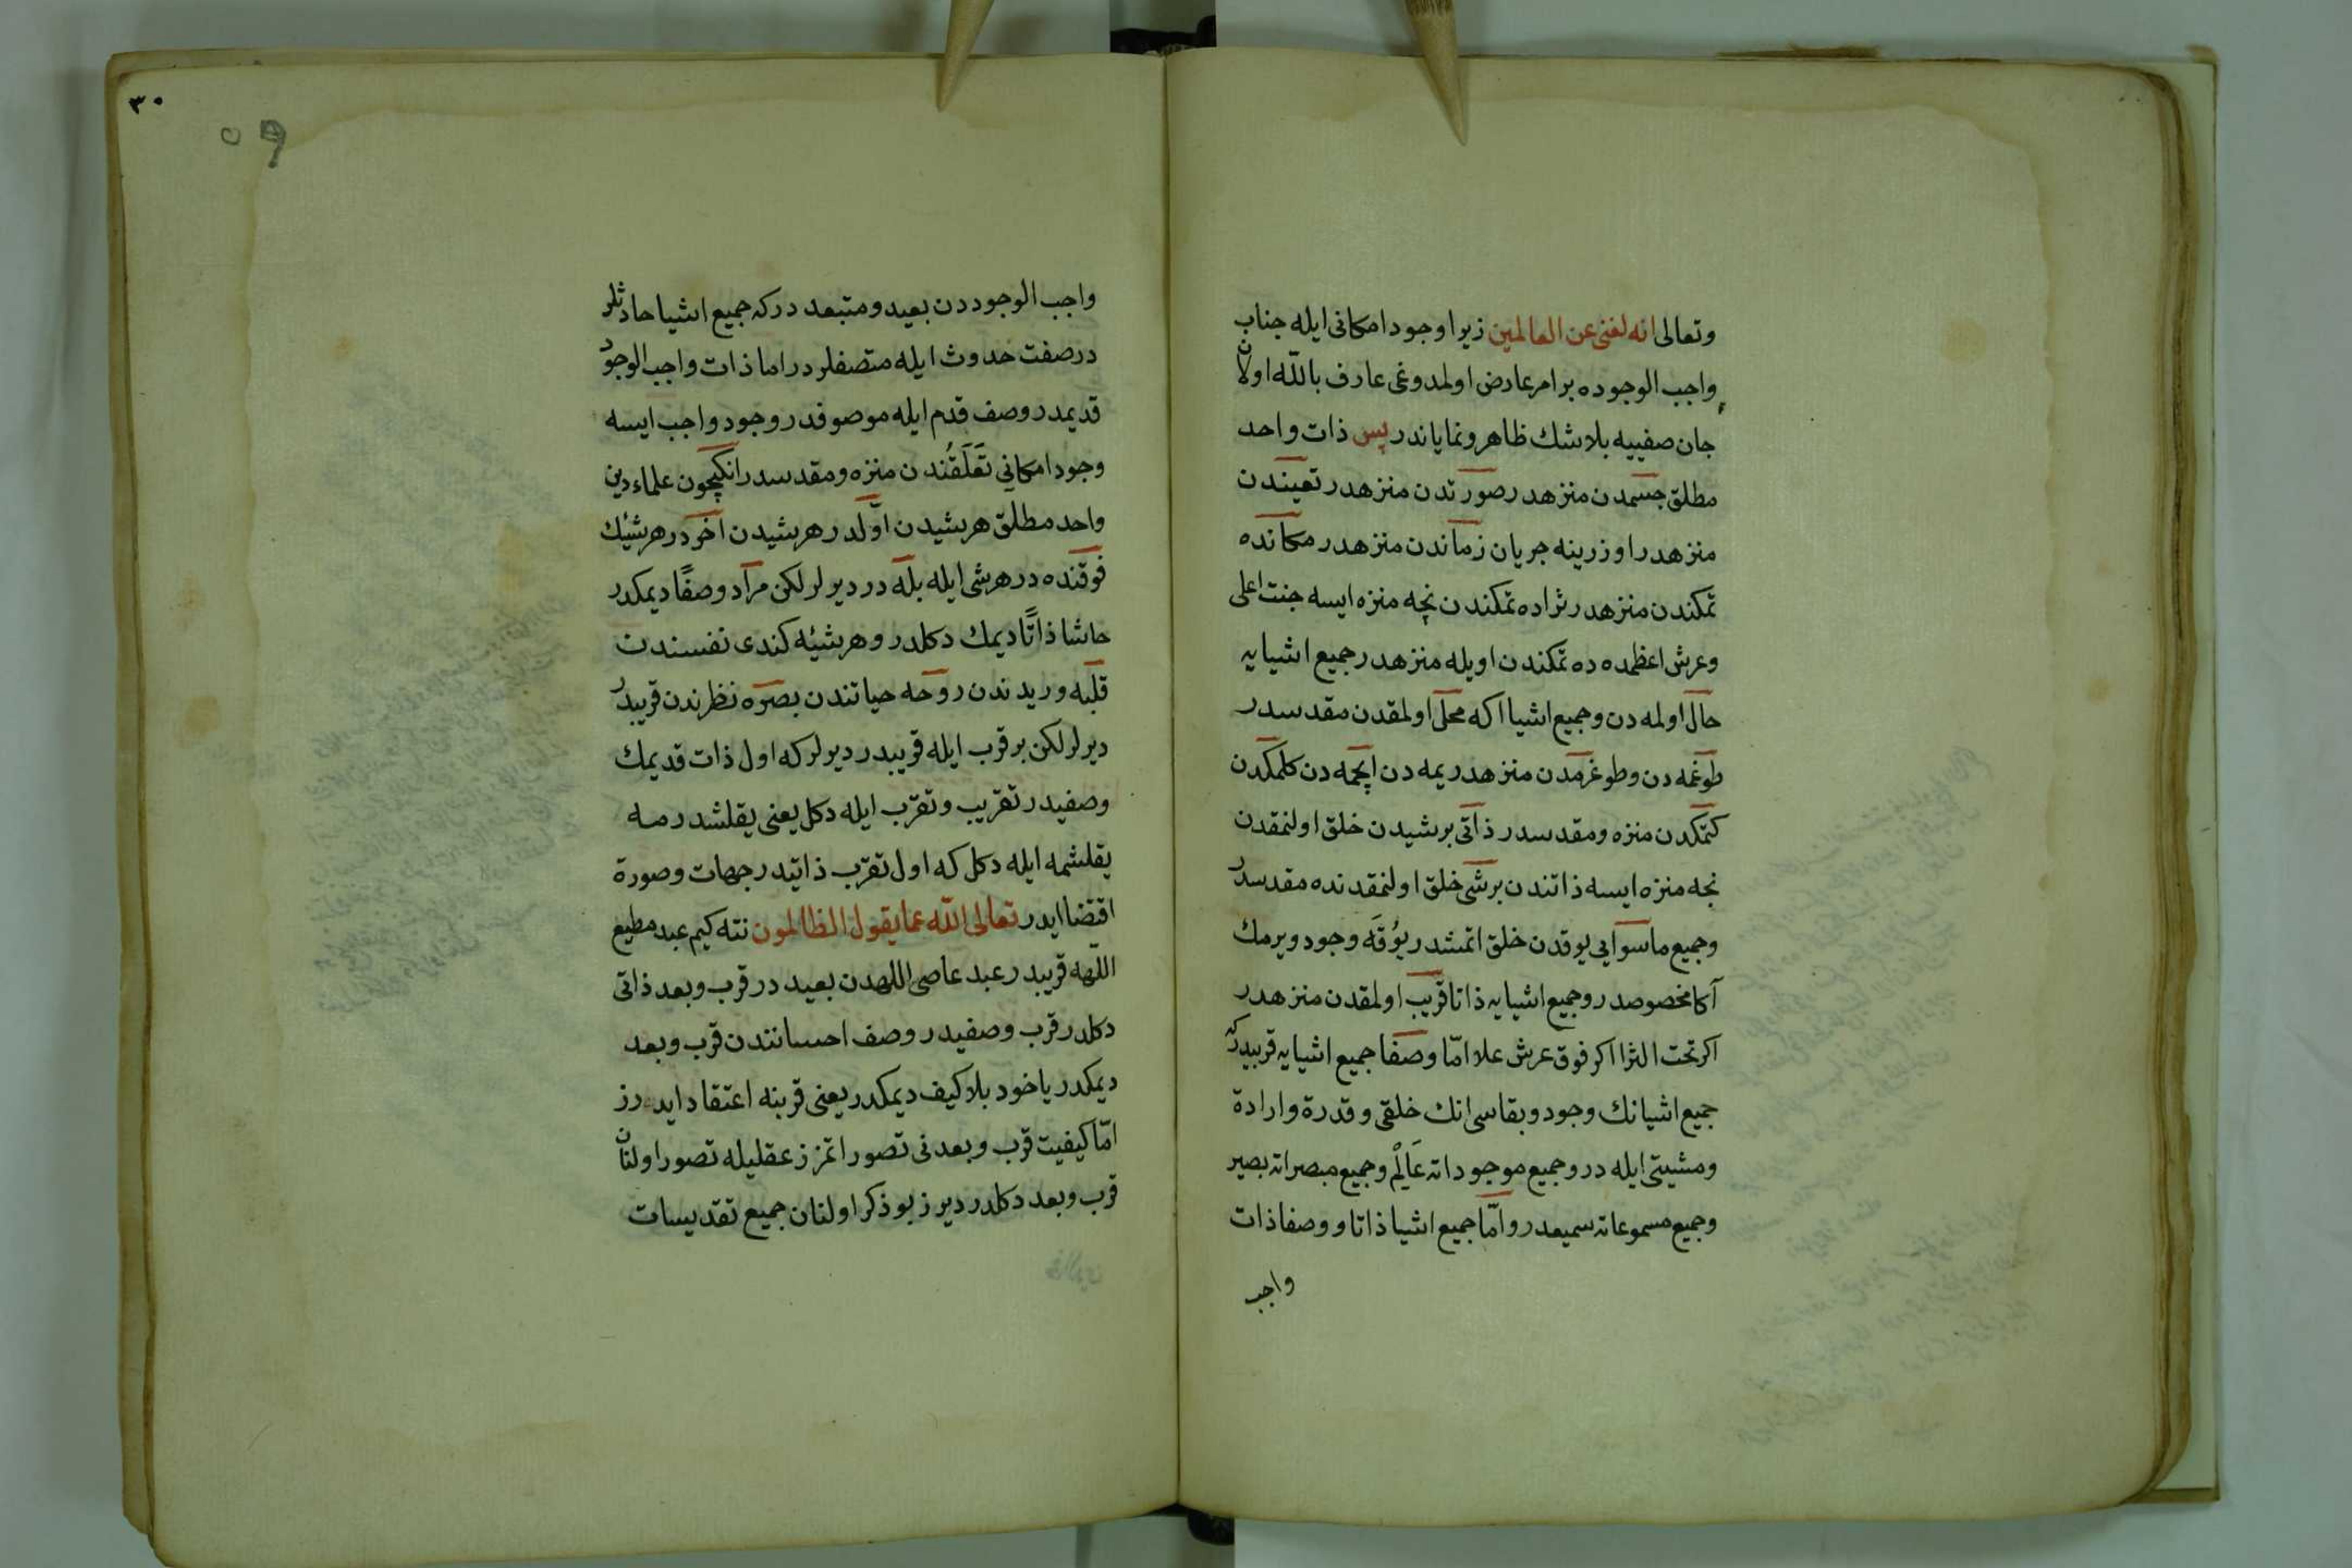 وتعالى انه لغنى عن العالمين زيرا وجود امكانى ايله جناب
واجب الوجوده بر امر عارض اولمدوغى عارف بالله اولان
جان صفييه بلاشك ظاهر ونماياندر پس ذات واحد
مطلق جسمدن منزهدر صورتدن منزهدر تعيندن
منزهدر اوزرينه جريان زماندن منزهدر مكانده
تمكندن منزهدر ثراده تمكندن نچه منزه ايسه جنت اعلى
وعرش اعظمده ده تمكندن اويله منزهدر جميع اشيايه
حال اولمه دن وجميع اشيا اكه محل اولمقدن مقدسدر
طوغمه دن وطوغرمدن منزهدر يمه دن ايچمه دن كلمكدن
كتمكدن منزه ومقدسدر ذاتى برشيدن خلق اولنمقدن
نجه منزه ايسه ذاتندن برشى خلق اولنمقدنده مقدسدر
وجميع ماسوايى يوقدن خلق اتمشدر يوقه وجود ويرمك
آكا مخصوصدر وجميع اشيايه ذاتا قريب اولمقدن منزهدر
اكر تحت الثرا اكر فوق عرش علا امّا وصفا جميع اشيايه قريبدركه
جميع اشيانك وجود وبقاسى انك خلقى وقدرة وارادة
ومشيتى ايله در وجميع موجوداته عَالِمْ وجميع مبصراته بصير
وجميع مسموعاته سميعدر وامّا جميع اشيا ذاتا ووصفا ذات
واجب
٣٠
واجب الوجوددن بعيد ومتبعد دركه جميع اشيا حادثلر
در صفت حدوث ايله متصفلردر اما ذات واجب الوجود
قديمدر وصف قدم ايله موصوفدر وجود واجب ايسه
وجود امكانى تَعَلَقُندن منزه ومقدسدر انكچون علماء دين
واحد مطلق هرشيدن اوّلدر هرشيدن آخردر هرشيئك
فوقنده در هرشى ايله بله در ديرلر لكن مراد وصفًا ديمكدر
حاشا ذاتًا ديمك دكلدر وهرشيئه كندى نفسندن
قلبه وريدندن روحه حياتندن بصره نظرندن قريبدر
ديرلر لكن بر قرب ايله قريبدر ديرلر كه اول ذات قديمك
وصفيدر تقريب وتقرّب ايله دكل يعنى يقلشدرمه
يقلشمه ايله دكل كه اول تقرّب ذاتيدر جهات وصورة
اقتضا ايدر تعالى الله عما يقول الظالمون نته كيم عبد مطيع
اللهه قريبدر عبد عاصى اللهدن بعيد در قرب وبعد ذاتى
دكلدر قرب وصفيدر وصف احساندن قرب وبعد
ديمكدر ياخود بلاكيف ديمكدر يعنى قربنه اعتقاد ايدرز
امّا كيفيت قرب وبعدنى تصور اتمزز عقليله تصور اولنان
قرب وبعد دكلدر ديرز بو ذكر اولنان جميع تقديسات